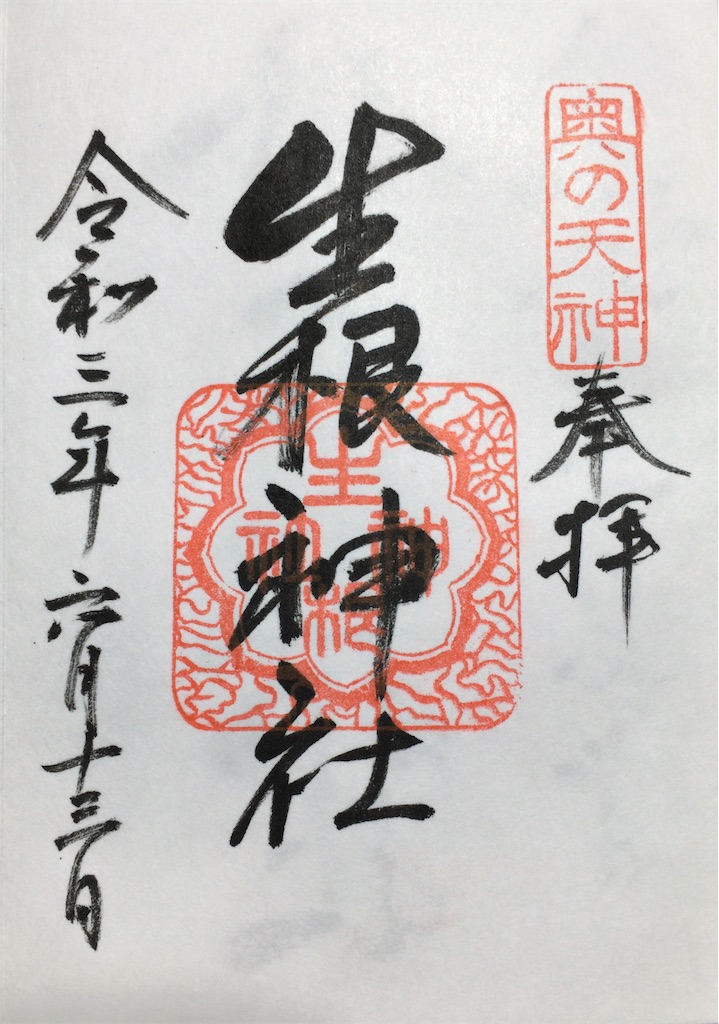 奥の天神
奉拝
生根神社
生根神社
令和三年六月十三日